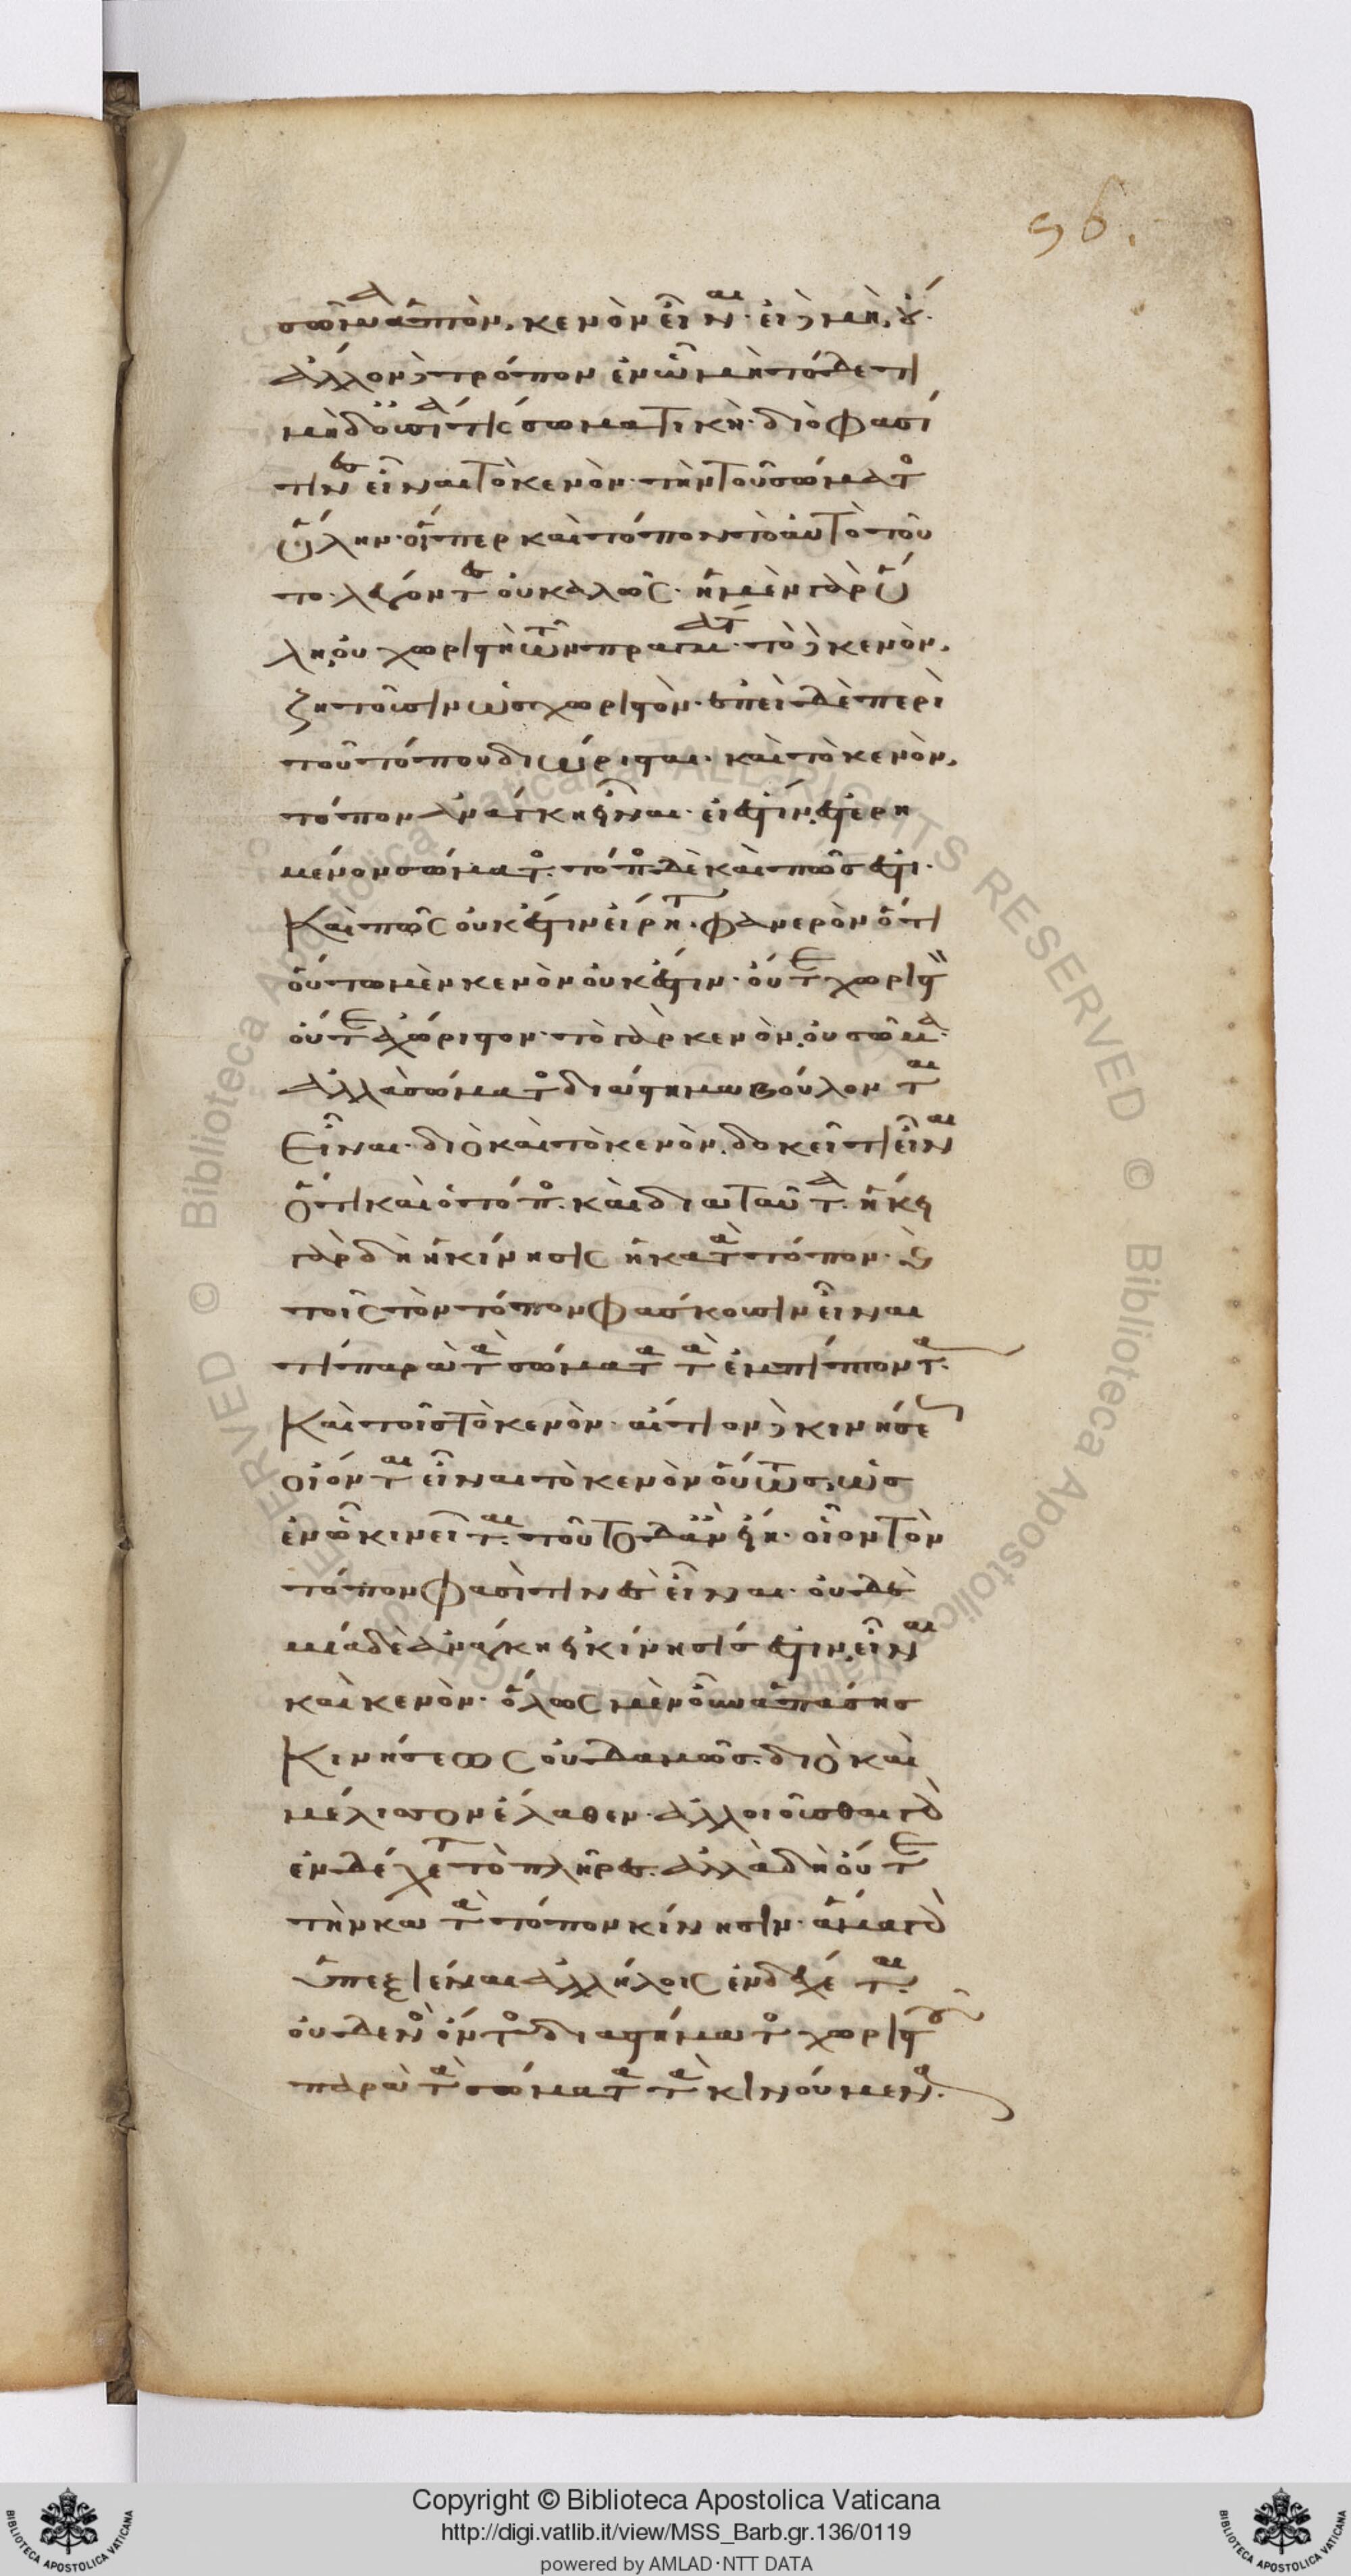 σῶμα ἁπτὸν, κενὸν εἶναι· εἰ δὲ μὴ, οὔ·
ἄλλον δὲ τρόπον ἐν ᾧ μὴ τόδε τι
μηδ οὐσία τὶς σωματικὴ· διὸ φασί
τινες εἶναι τὸ κενὸν τὴν τοῦ σώματος
ὕλην· οἵπερ καὶ τόπον τὸ αὐτὸ τοῦ
το λέγοντες οὐ καλῶς· ἡ μὲν γὰρ ὕ
λη, οὐ χωριστὴ τῶν πραγμάτων· τὸ δὲ κενὸν,
ζητοῦσιν ὡς χωριστὸν· ἐπεὶ δὲ περὶ
τοῦ τόπου διώρισται· καὶ τὸ κενὸν,
τόπον ἀνάγκη εἶναι· εἰ ἔστιν, ἐστερη
μένον σώματος· τόπος δὲ καὶ πῶς ἔστι·
καὶ πῶς οὐκ ἔστιν εἴρηται· φανερὸν ὅτι
οὕτω μὲν κενὸν οὐκ ἔστιν· οὔτε χωριστὸν
οὔτε ἀχώριστον· τὸ γὰρ κενὸν, οὐ σῶμα·
ἀλλὰ σώματος διάστημα βούλονται
εἶναι· διὸ καὶ τὸ κενὸν, δοκεῖ τι εἶναι
ὅτι καὶ ὁ τόπος· καὶ διὰ ταῦτα· ἥκει
γὰρ δὴ ἡ κίνησις ἡ κατὰ τόπον· καὶ
τοῖς τὸν τόπον φάσκουσιν εἶναι
τί παρὰ τὰ σώματα τὰ ἐμπίπτοντα·
καὶ τοῖς τὸ κενὸν· αἴτιον δὲ κινήσεως
οἴονται εἶναι τὸ κενὸν οὕτως, ὡς
ἐν ᾧ κινεῖται· τοῦτο δ ἂν εἴη· οἷον τὸν
τόπον φασὶ τινὲς εἶναι· οὐδε
μία δὲ ἀνάγκη εἰ κίνησίς ἔστιν, εἶναι
καὶ κενὸν· ὅλως μὲν οὖν ἁπάσης
κινήσεως οὐδαμῶς· διὸ καὶ
μέλισσον ἔλαθεν· ἀλλοιοῦσθαι γὰρ
ἐνδέχεται τὸ πλῆρες· ἀλλὰ δὴ οὔτε
τὴν κατὰ τόπον κίνησιν· ἅμα γὰρ
ὑπεξιέναι ἀλλήλοις ἐνδέχεται·
οὐδενὸς ὄντος διαστήματος χωριστοῦ
παρὰ τὰ σώματα τὰ κινούμενα·
Copyright © Biblioteca Apostolica Vaticana
http://digi.vatlib.it/view/MSS_Barb.gr.136/0119
powered by AMLAD·NTT DATA